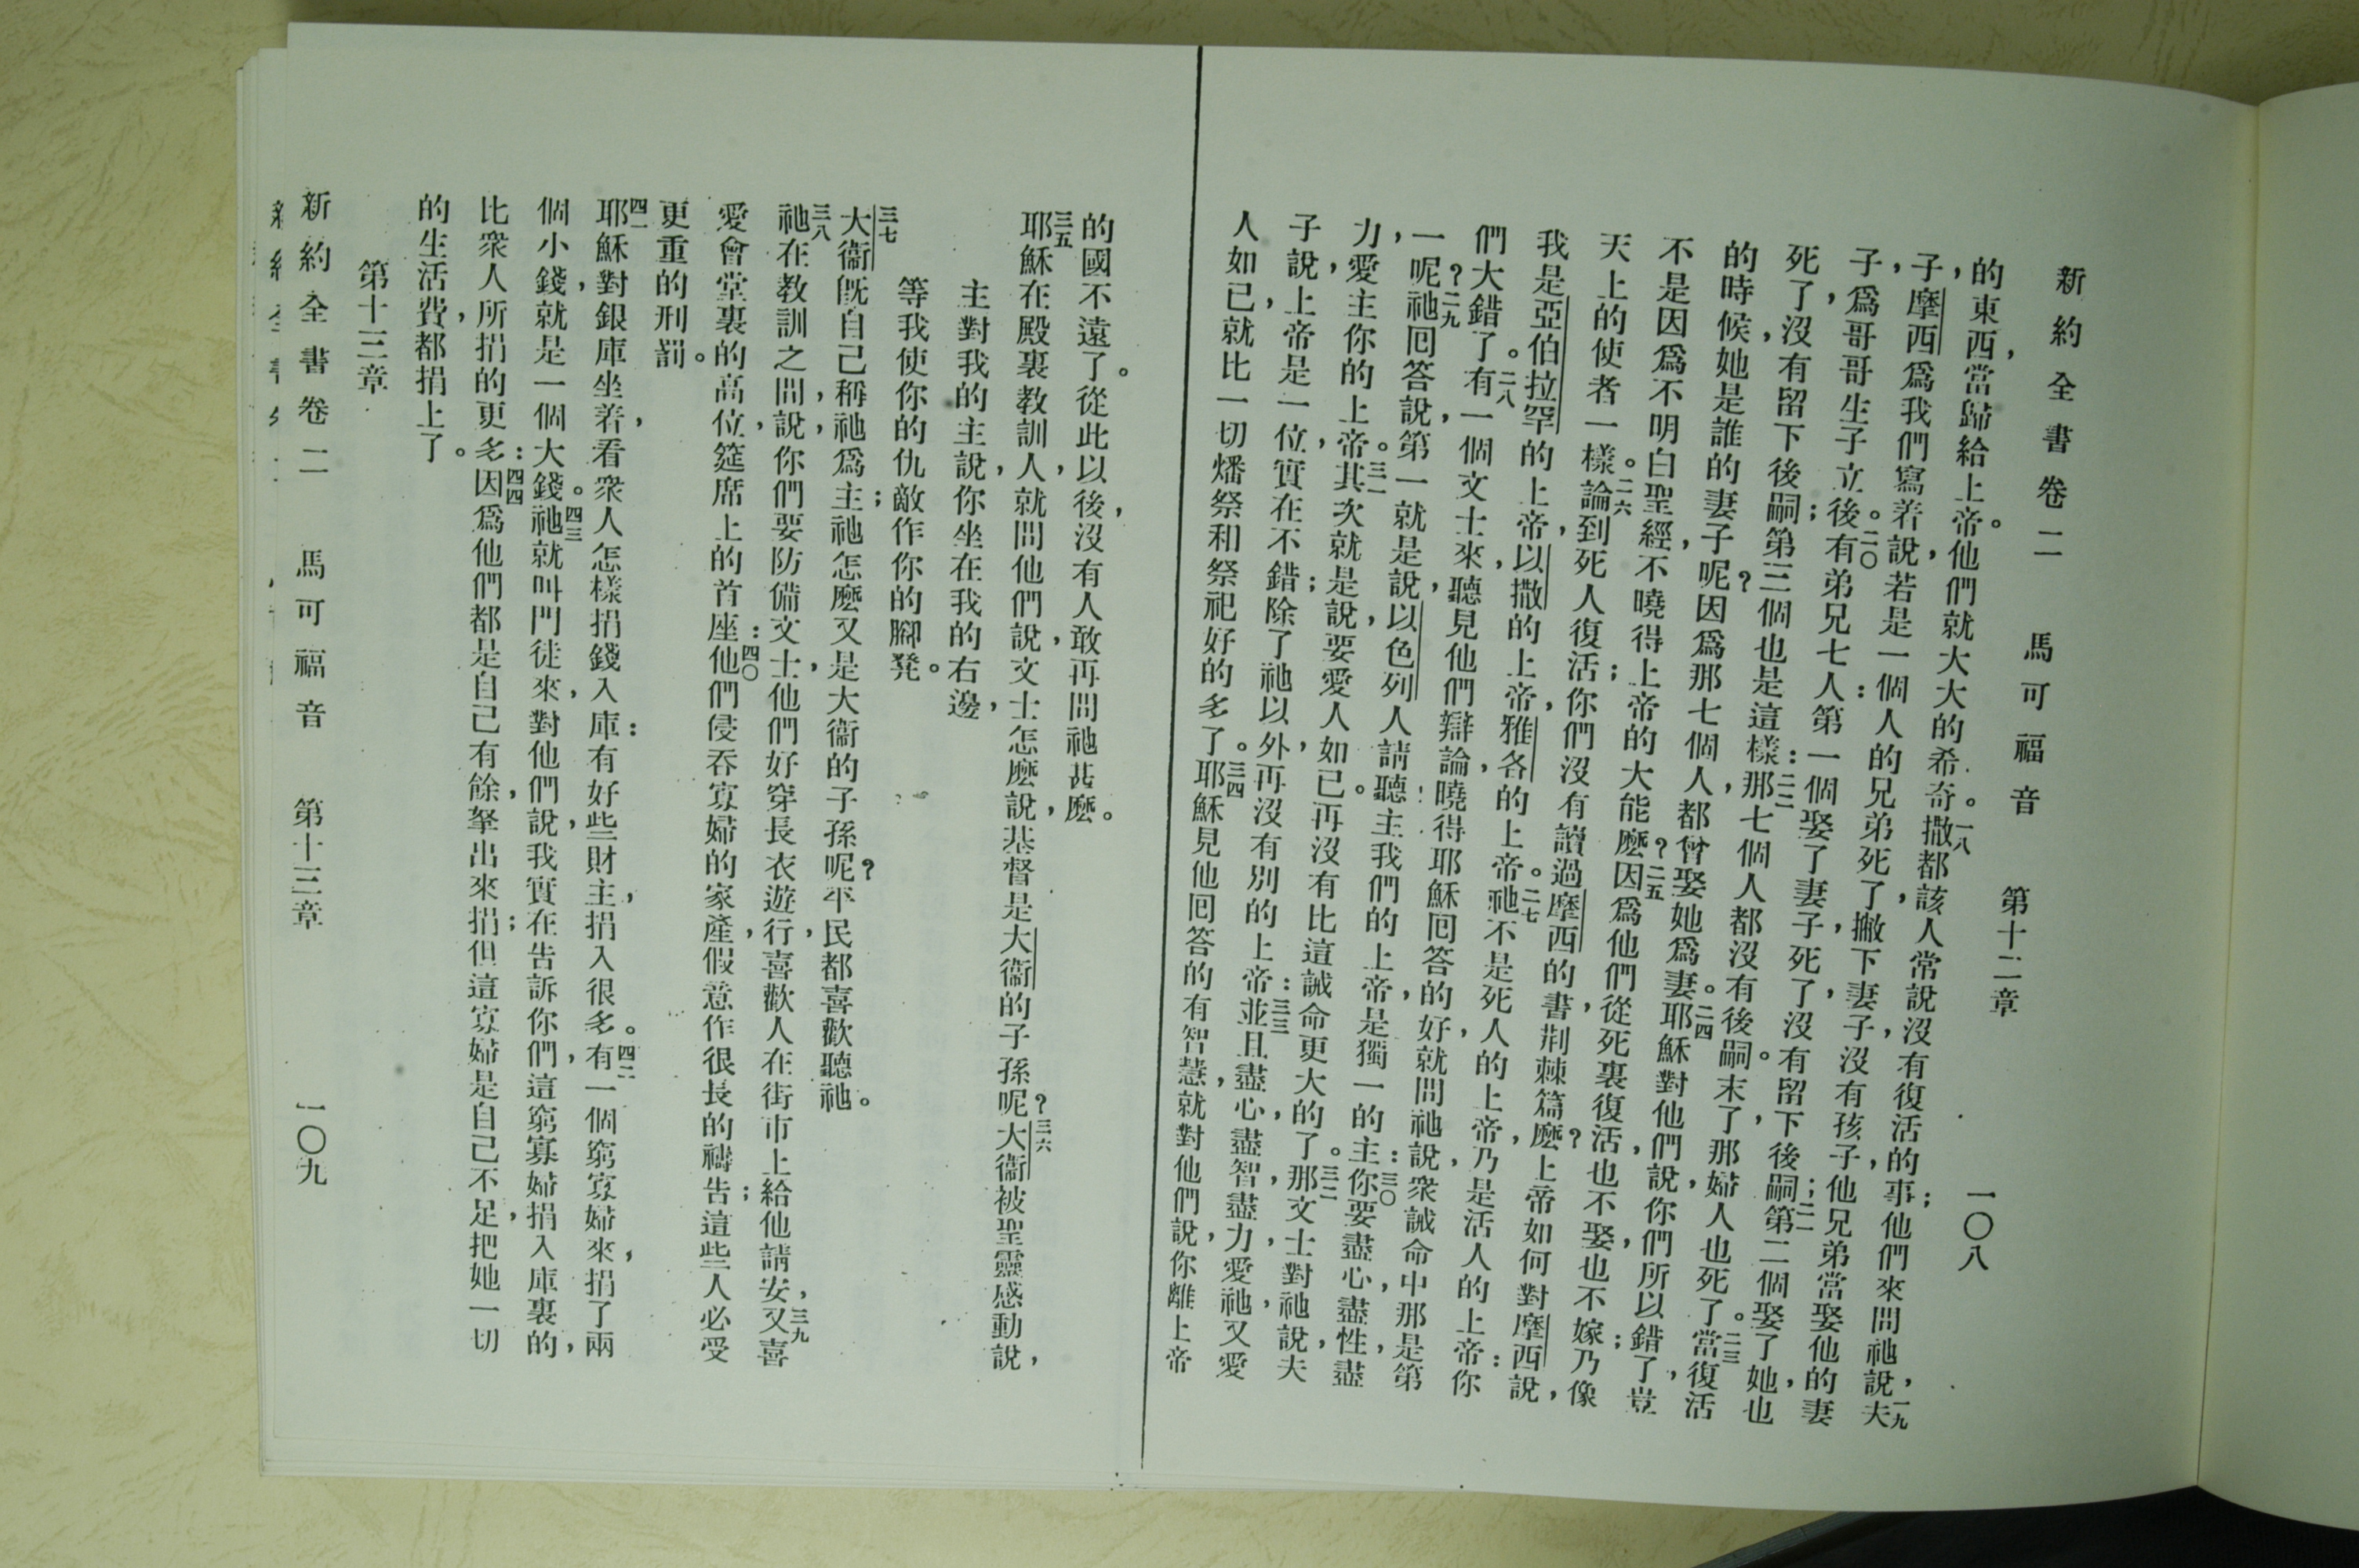 新約全書卷二　馬可福音　第十二章　一〇八
的東西，當歸給上帝。他們就大大的希奇。一八撒都該人常說，沒有復活的事；他們來問祂說，一九夫
子，摩西爲我們寫着說，若是一個人的兄弟死了，撇下妻子，沒有孩子，他兄弟當娶他的妻
子，爲哥哥生子立後。二〇有弟兄七人：第一個娶了妻子，死了，沒有留下後嗣；二一第二個娶了她，也
死了，沒有留下後嗣；第三個也是這樣：二二那七個人都沒有後嗣。末了，那婦人也死了。二三當復活
的時候，她是誰的妻子呢？因爲那七個人，都曾娶她爲妻。二四耶穌對他們說，你們所以錯了，豈
不是因爲不明白聖經，不曉得上帝的大能麼？二五因爲他們從死裏復活，也不娶，也不嫁；乃像
天上的使者一樣。二六論到死人復活；你們沒有讀過摩西的書，荆棘篇麼？上帝如何對摩西說，
我是亞伯拉罕的上帝，以撒的上帝，雅各的上帝。二七祂不是死人的上帝，乃是活人的上帝：你
們大錯了。二八有一個文士來，聽見他們辯論，曉得耶穌囘答的好，就問祂說，衆誡命中那是第
一呢？二九祂囘答說，第一就是說，以色列人請聽，主我們的上帝，是獨一的主：三〇你要盡心，盡性，盡
力，愛主你的上帝。三一其次就是說，要愛人如己。再沒有比這誡命更大的了。三二那文士對祂說，夫
子說，上帝是一位，實在不錯；除了祂以外，再沒有別的上帝：三三並且盡心，盡智，盡力，愛祂，又愛
人如己，就比一切燔祭和祭祀好的多了。三四耶穌見他囘答的有智慧，就對他們說，你離上帝
的國不遠了。從此以後，沒有人敢再問祂甚麼。
三五耶穌在殿裏教訓人，就問他們說，文士怎麼說，基督是大衞的子孫呢？三六大衞被聖靈感動說，
主對我的主說，你坐在我的右邊，
等我使你的仇敵作你的腳凳。
三七大衞旣自己稱祂爲主；祂怎麼又是大衞的子孫呢？平民都喜歡聽祂。
三八祂在教訓之間，說，你們要防備文士，他們好穿長衣遊行，喜歡人在街市上給他請安，三九又喜
愛會堂裏的高位，筵席上的首座：四〇他們侵吞寡婦的家產，假意作很長的禱告；這些人必受
更重的刑罰。
四一耶穌對銀庫坐着，看衆人怎樣捐錢入庫：有好些財主，捐入很多。四二有一個窮寡婦來，捐了兩
個小錢，就是一個大錢。四三祂就叫門徒來，對他們說，我實在告訴你們，這窮寡婦捐入庫裏的，
比衆人所捐的更多：四四因爲他們都是自己有餘，拏出來捐；但這寡婦是自己不足，把她一切
的生活費，都捐上了。
第十三章
新約全書卷二　馬可福音　第十三章　一〇九